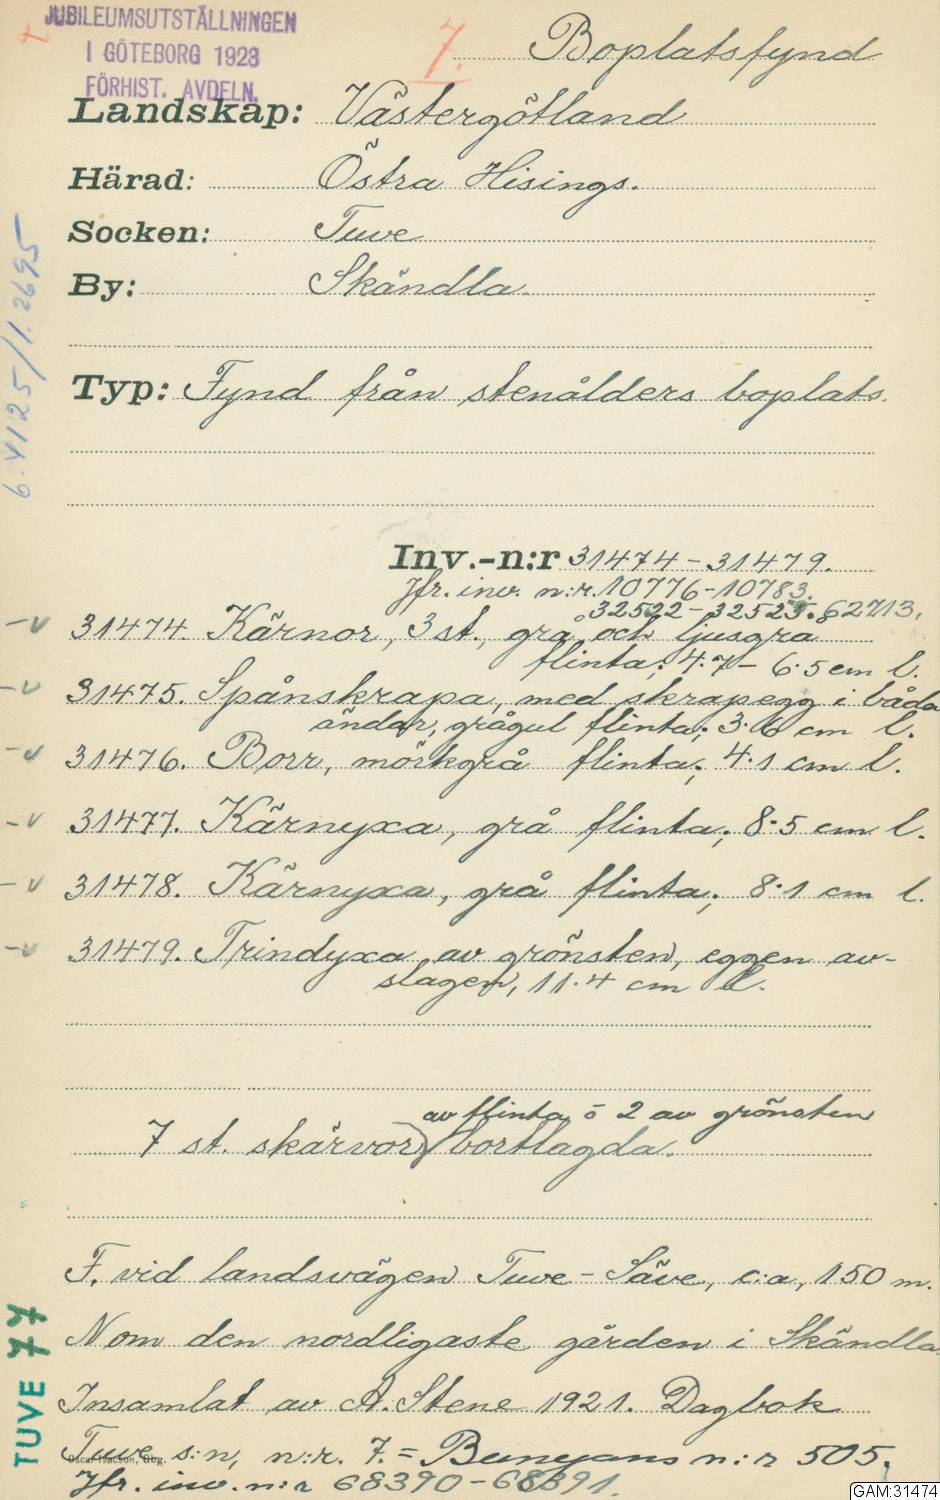 JUBILEUMSUTSTÄLLNINGEN
I GÖTEBORG 1923
FÖRHIST. AVDELN.
7. Boplatsfynd
Landskap: Västergötland
Härad: Östra Hisings.
Socken: Tuve
By: Skändla
6.4125/1.2695
Typ: Fynd från stenålders boplats.
Inv.-n:r 31474-31479.
Jfr. inv. n:r. 10776-10783.
32522-32525. 62713.
31474. Kärnor, 3 st., grå och ljusgrå
flinta; 4.7-6.5 cm l.
31475. Spånskrapa, med skrapegg i båda
ändar, grågul flinta; 3.6 cm l.
31476. Borr, mörkgrå flinta; 4.1 cm l.
31477. Kärnyxa, grå flinta; 8.5 cm l.
31478. Kärnyxa, grå flinta; 8.1 cm l.
31479. Trindyxa av grönsten, eggen av-
slagen, 11.4 cm l.
av flinta o 2 av grönsten
7 st. skärvor bortlagda.
F. vid landsvägen Tuve-Säve, c:a, 150 m.
N om den nordligaste gården i Skändla
Insamlat av A. Stene 1921. Dagbok
Tuve s:n, n:r. 7. = Bunyans n:r 505.
Oscar Isacson, Gbg.
Jfr. inv. n:r 68390-68391.
TUVE 77
GAM:31474